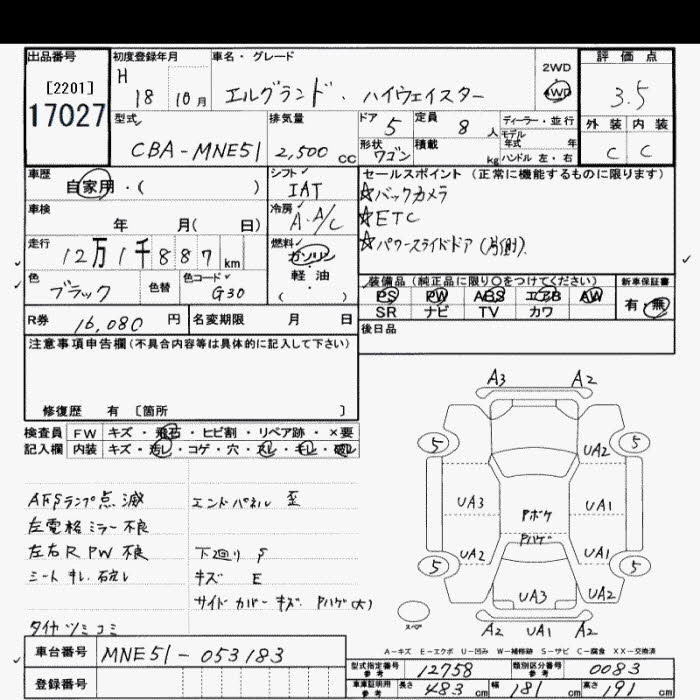 出品番号
[2201]
17027
初度登録年月
H 18 10月
車名・グレード
エルグランド・ハイウェイスター
2WD
4WD
評価点
3.5
外装 内装
C C
型式
CBA-MNE51
排気量
2,500 CC
ドア 5
形状 ワゴン
定員 8 人
積載 kg
ディーラー・並行
モデル年式 年
ハンドル 左・右
車歴
自家用・( )
シフト
IAT
車検
年 月( 日)
冷房
A・A/C
走行
12万1千887km
燃料
ガソリン
軽・油
( )
色
ブラック
色替
色コード
G30
R券 16,080 円
名変期限 月 日
セールスポイント(正常に機能するものに限ります)
☆バックカメラ
☆ETC
☆パワースライドドア(片側)
装備品(純正品に限り〇をつけてください)
PS PW ABS エアB AW
SR ナビ TV カワ
新車保証書
有・無
後日品
注意事項申告欄(不具合内容等は具体的に記入して下さい)
修復歴 有 [箇所 ]
検査員 FW キズ・飛石・ヒビ割・リペア跡・×要
記入欄 内装 キズ・汚レ・コゲ・穴・スレ・キレ・
AFSランプ点滅
左電格ミラー不良
左右R PW不良
シート キレ.
タイヤツミコミ
エンドパネル 歪
下廻り S
キズ E
サイドカバー キズ Pハゲ(大)
A3 A2
5 5
UA2
UA3 Pボケ UA1
Pハゲ
UA2 UA1
5 5
UA3 UA2
スペア
A2 UA1 A2
A-キズ E-エクボ U-凹み W-補修跡 S-サビ C-腐食 XX-交換済
車台番号 MNE51-053183
登録番号
型式指定番号 参考 12758
類別区分番号 参考 0083
車庫証明用 参考 長さ 483 cm 幅 181 cm 高さ 191 cm